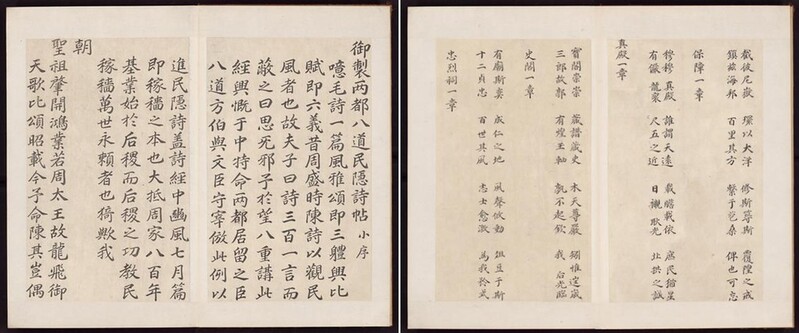 御製兩都八道民隱詩帖 小序
噫毛詩一篇風雅頌即三體興比
賦即六義昔周盛時陳詩以觀民
風者也故夫子曰詩三百一言而
蔽之曰思死邪予於望八重講此
經興慨于中特命兩都居留之臣
八道方伯與文臣守宰倣此例以
進民隱詩盖詩經中豳風七月篇
即稼穡之本也大抵周家八百年
基業始於后稷而后稷之功教民
稼穡萬世永賴者也猗歟我
朝
聖祖肇開鴻業若周太王故龍飛御
天歌比頌昭載今予命陳其豈偶
彼尼嶽 環以大洋 修斯斯 覆隍之戒
鎭玆海邦 百里其方 繫于苞桑 俾也可忘
保障一章
穆穆真殿 誰謂天遠 載瞻載依 庶民猶星
有儼龍袞 尺五之近 日襯耿光 北拱之誠
真殿一章
寶閣崇崇 藏譜藏史 木天尊嚴 惟邃
三郎故都 有煌玉軸 孰不起欽 我后光臨
史閣一章
有廟斯奕 成仁之地 風聲攸動 俎豆于斯
十二貞忠 百世其風 志士愈激 爲我矜式
忠烈祠一章